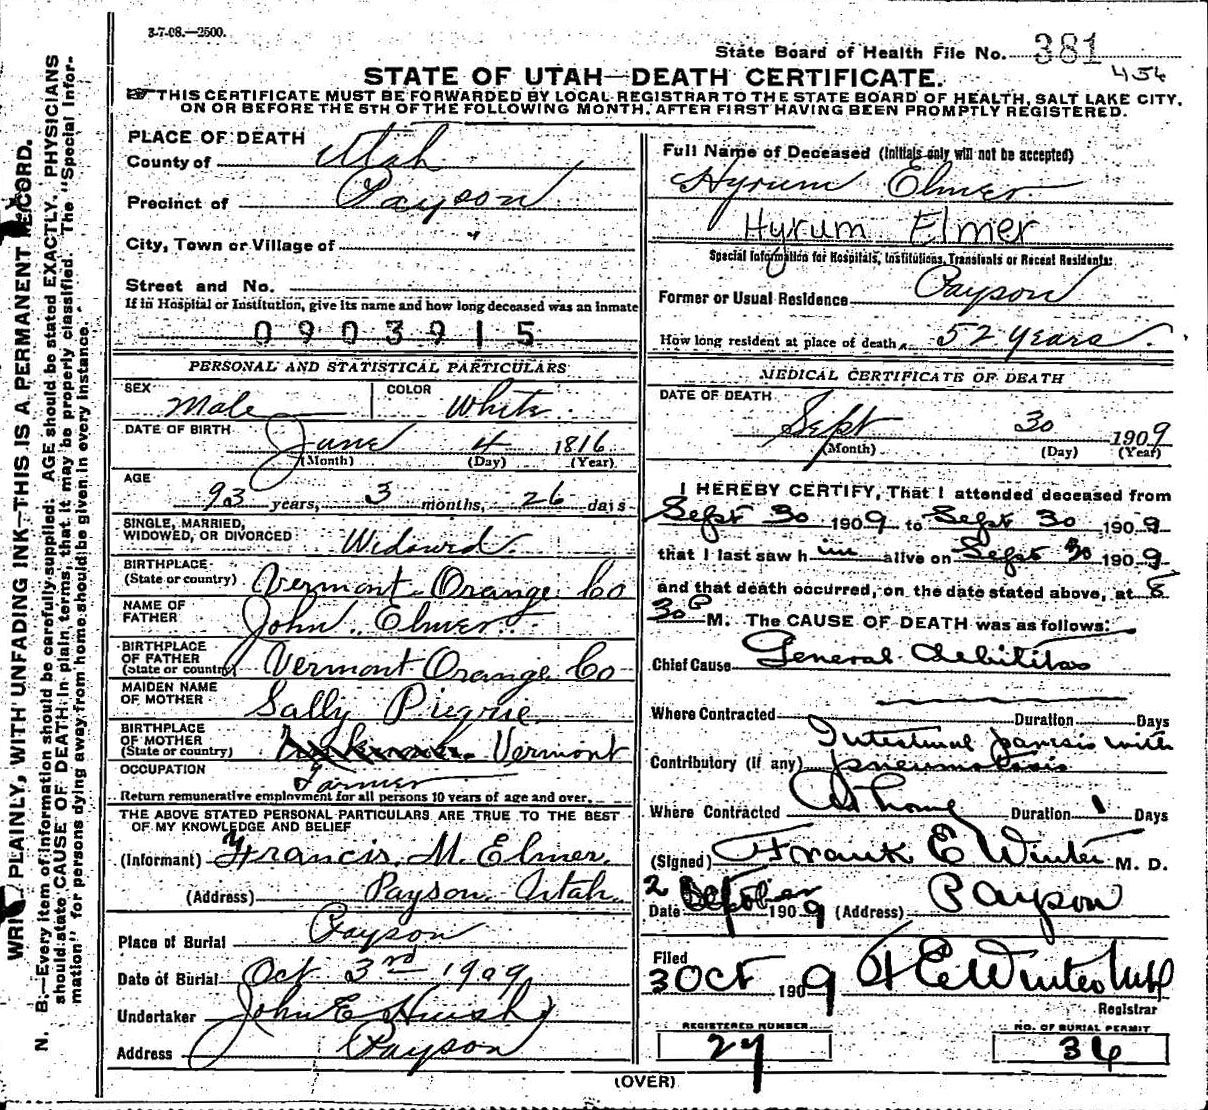 3-7-08.—2500.
State Board of Health File No. 381
454
STATE OF UTAH—DEATH CERTIFICATE.
THIS CERTIFICATE MUST BE FORWARDED BY LOCAL REGISTRAR TO THE STATE BOARD OF HEALTH, SALT LAKE CITY,
ON OR BEFORE THE 5TH OF THE FOLLOWING MONTH, AFTER FIRST HAVING BEEN PROMPTLY REGISTERED.
PLACE OF DEATH
County of Utah
Precinct of Payson
City, Town or Village of
Street and No.
If in Hospital or Institution, give its name and how long deceased was an inmate
0903915
PERSONAL AND STATISTICAL PARTICULARS
SEX Male COLOR White
DATE OF BIRTH
June 4 1816
(Month) (Day) (Year)
AGE
93 years, 3 months, 26 days
SINGLE, MARRIED,
WIDOWED, OR DIVORCED Widowed
BIRTHPLACE
(State or country) Vermont Orange Co
NAME OF
FATHER John Elmer
BIRTHPLACE
OF FATHER
(State or country) Vermont Orange Co
MAIDEN NAME
OF MOTHER Sally
BIRTHPLACE
OF MOTHER
(State or country) Vermont
OCCUPATION Farmer
Return remunerative employment for all persons 10 years of age and over.
THE ABOVE STATED PERSONAL PARTICULARS ARE TRUE TO THE BEST
OF MY KNOWLEDGE AND BELIEF
(Informant) Francis M. Elmer
(Address) Payson Utah
Place of Burial Payson
Date of Burial Oct 3rd 1909
Undertaker John E
Address Payson
Full Name of Deceased (Initials only will not be accepted)
Hyrum Elmer
Hyrum Elmer
Special Information for Hospitals, Institutions, Transients or Recent Residents:
Former or Usual Residence Payson
How long resident at place of death 52 years.
MEDICAL CERTIFICATE OF DEATH
DATE OF DEATH
Sept 30 1909
(Month) (Day) (Year)
I HEREBY CERTIFY, That I attended deceased from
Sept 30 1909 to Sept 30 1909
that I last saw him alive on Sept 30 1909
and that death occurred, on the date stated above, at 8
30 P M. The CAUSE OF DEATH was as follows:
Chief Cause General debilitas
Where Contracted Duration Days
Intestinal paresis with
Contributory (if any)
Where Contracted At home Duration 1 Days
(Signed) Frank E Winter M. D.
2
Date October 1909 (Address) Payson
Filed
3 Oct 1909 F E Winter MD
Registrar
REGISTERED NUMBER
27
NO. OF BURIAL PERMIT
36
(OVER)
WRITE PLAINLY, WITH UNFADING INK—THIS IS A PERMANENT RECORD.
N. B.—Every item of information should be carefully supplied. AGE should be stated EXACTLY. PHYSICIANS
should state CAUSE OF DEATH in plain terms, that it may be properly classified. The "Special Infor-
mation" for persons dying away from home should be given in every instance.